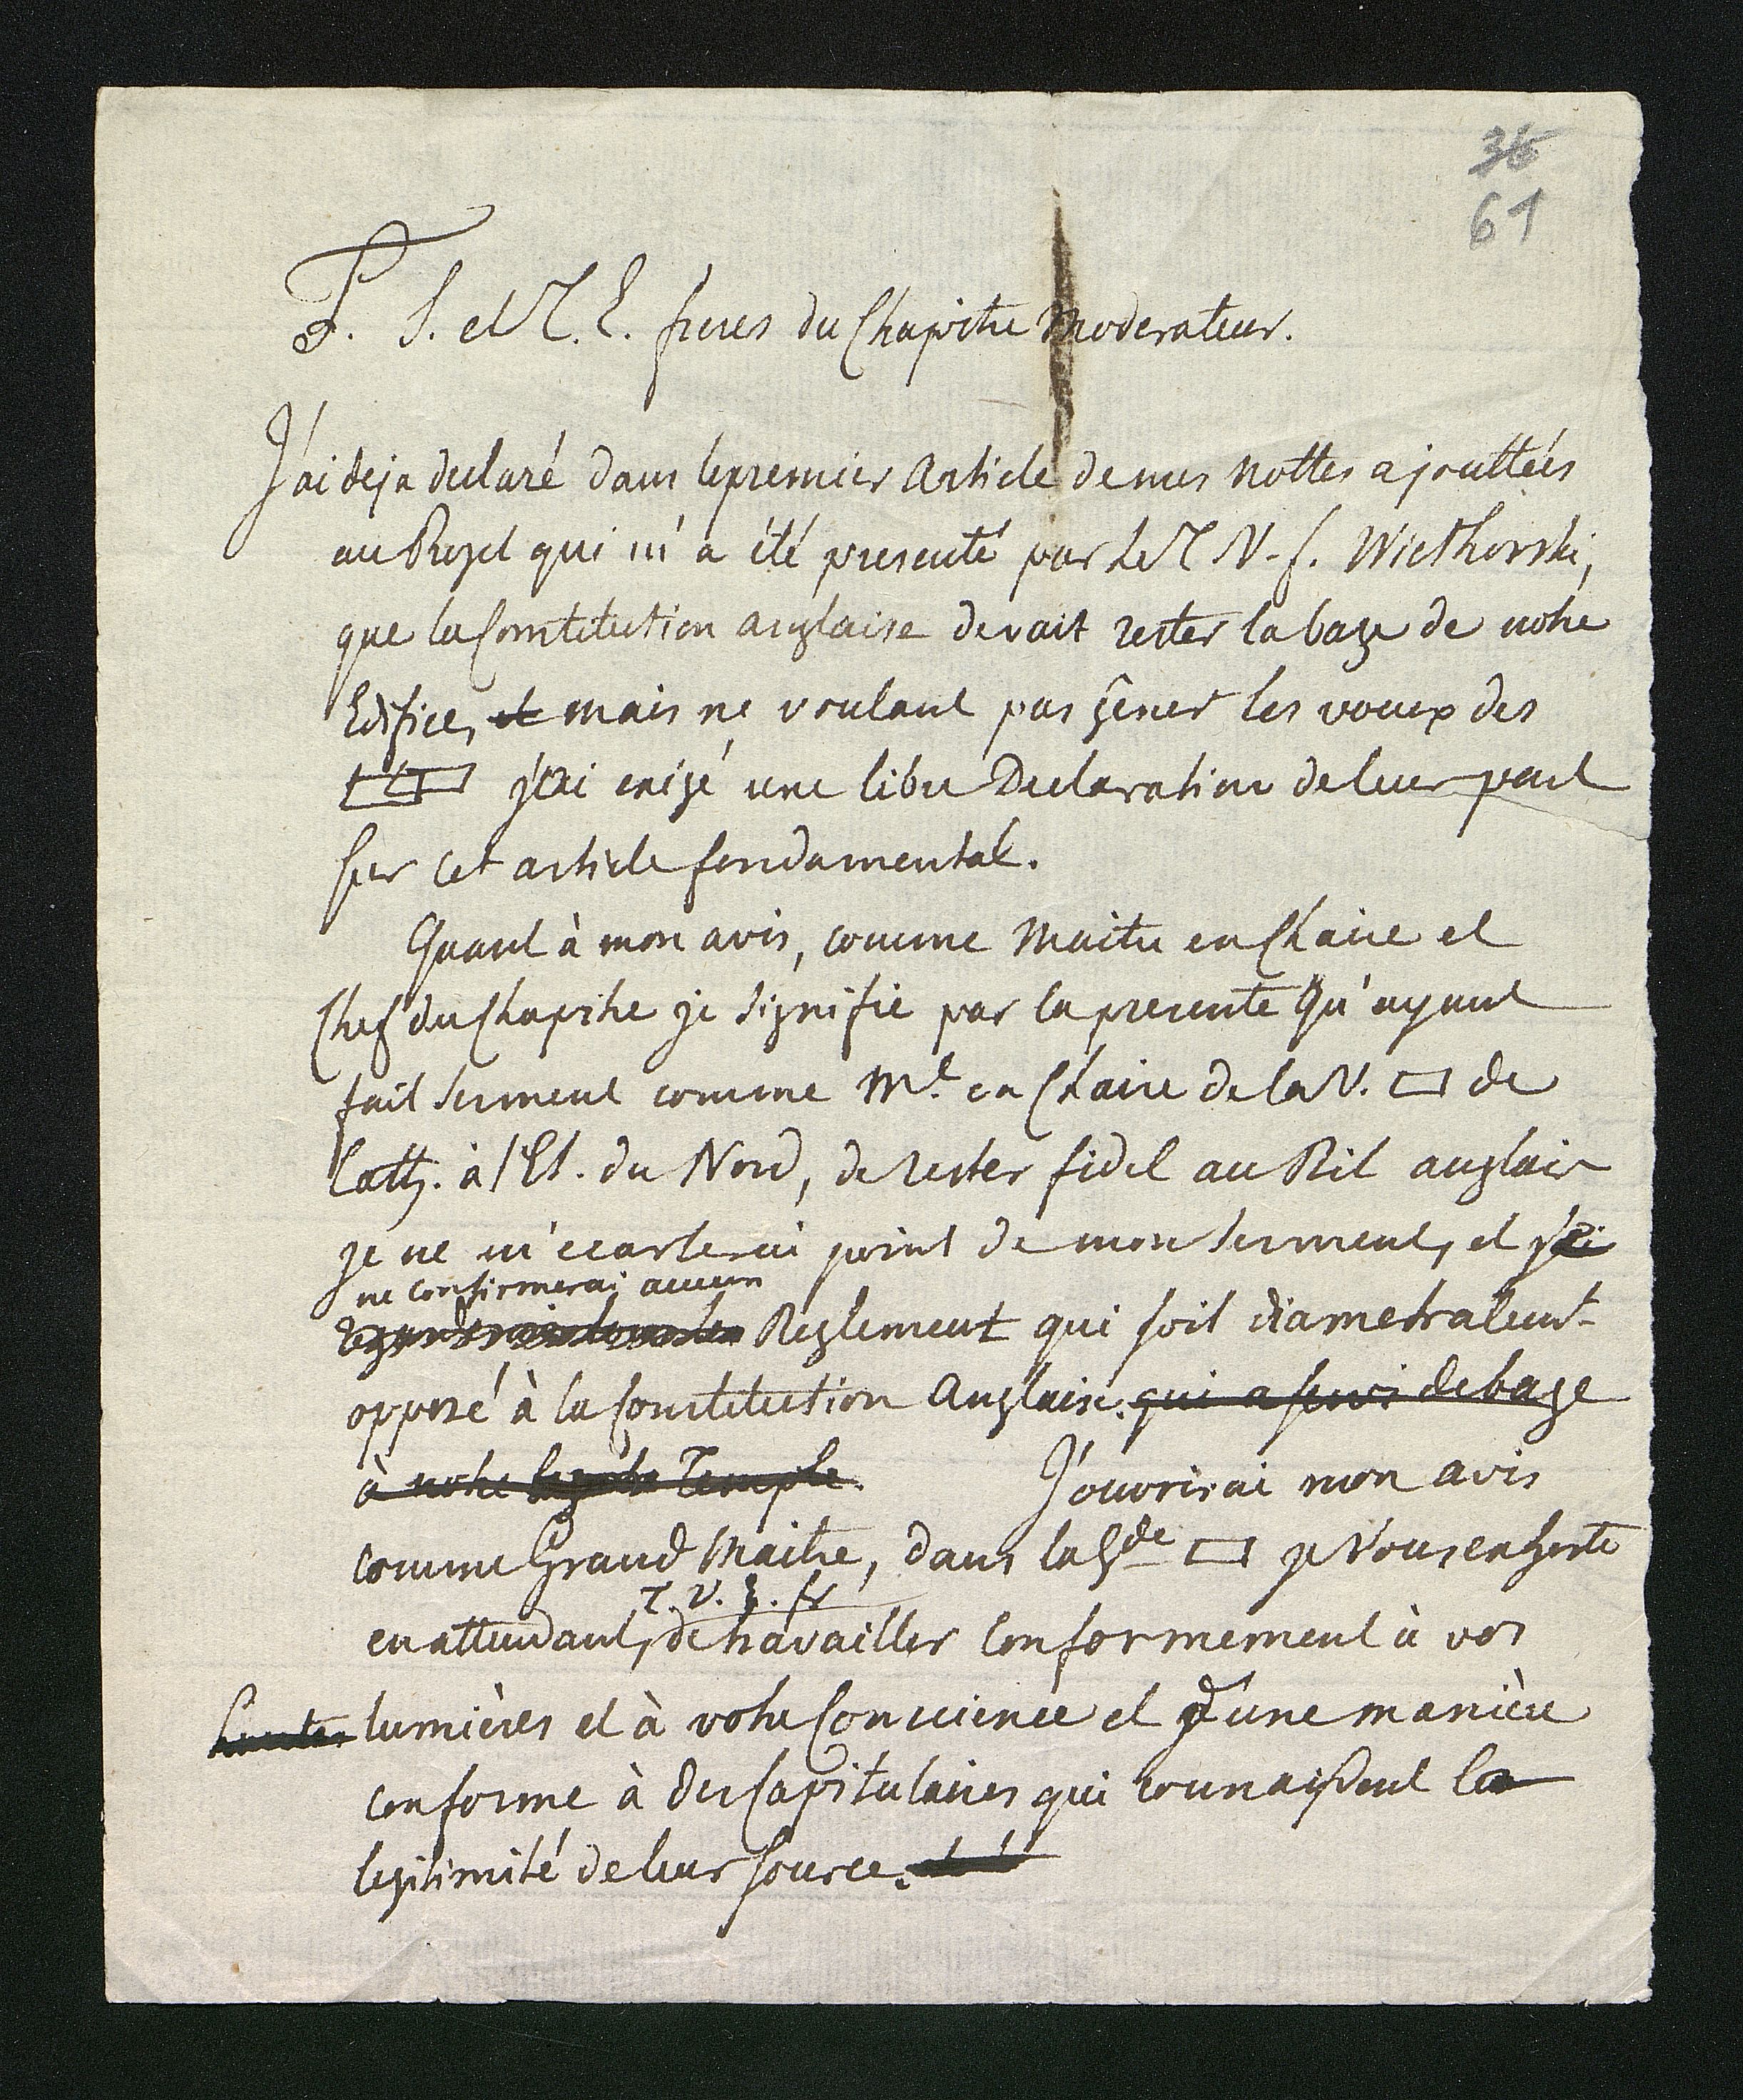 36
61
T. S. et T. E. freres du Chapitre Moderateur.
J'ai deja declaré dans le premier Article de mes nottes ajouttées
au Projet qui m'a été presenté par le T. V. f. Wielhorski,
que la Constitution anglaise devait rester la baze de notre
Edifice, et mais ne voulant pas gêner les voeux des
j'ai exigé une libre Declaration de leur part
sur cet article fondamental.
Quant à mon avis, comme Maitre en Chaire et
Chef du Chapitre je signifie par la presente qu'ayant
fait serment comme Me. en Chaire de la V. □ de
Cath. à l'Et. du Nord, de rester fidel au Rit anglais
je ne m'ecarterai point de mon serment, et j'ai
ne confirmerai aucun
Reglement qui soit diametralemt
opposé à la Constitution Anglaise. qui a servi de baze
à notre Temple. J'ouvrirai mon avis
comme Grand Maitre, dans la Gde □ je vous exhorte
T. V. E. fr
en attendant, de travailler conformement à vos
hautes lumières et à votre Conscience et d'une manière
conforme à des Capitulaires qui connaissent la
legitimité de leur source.